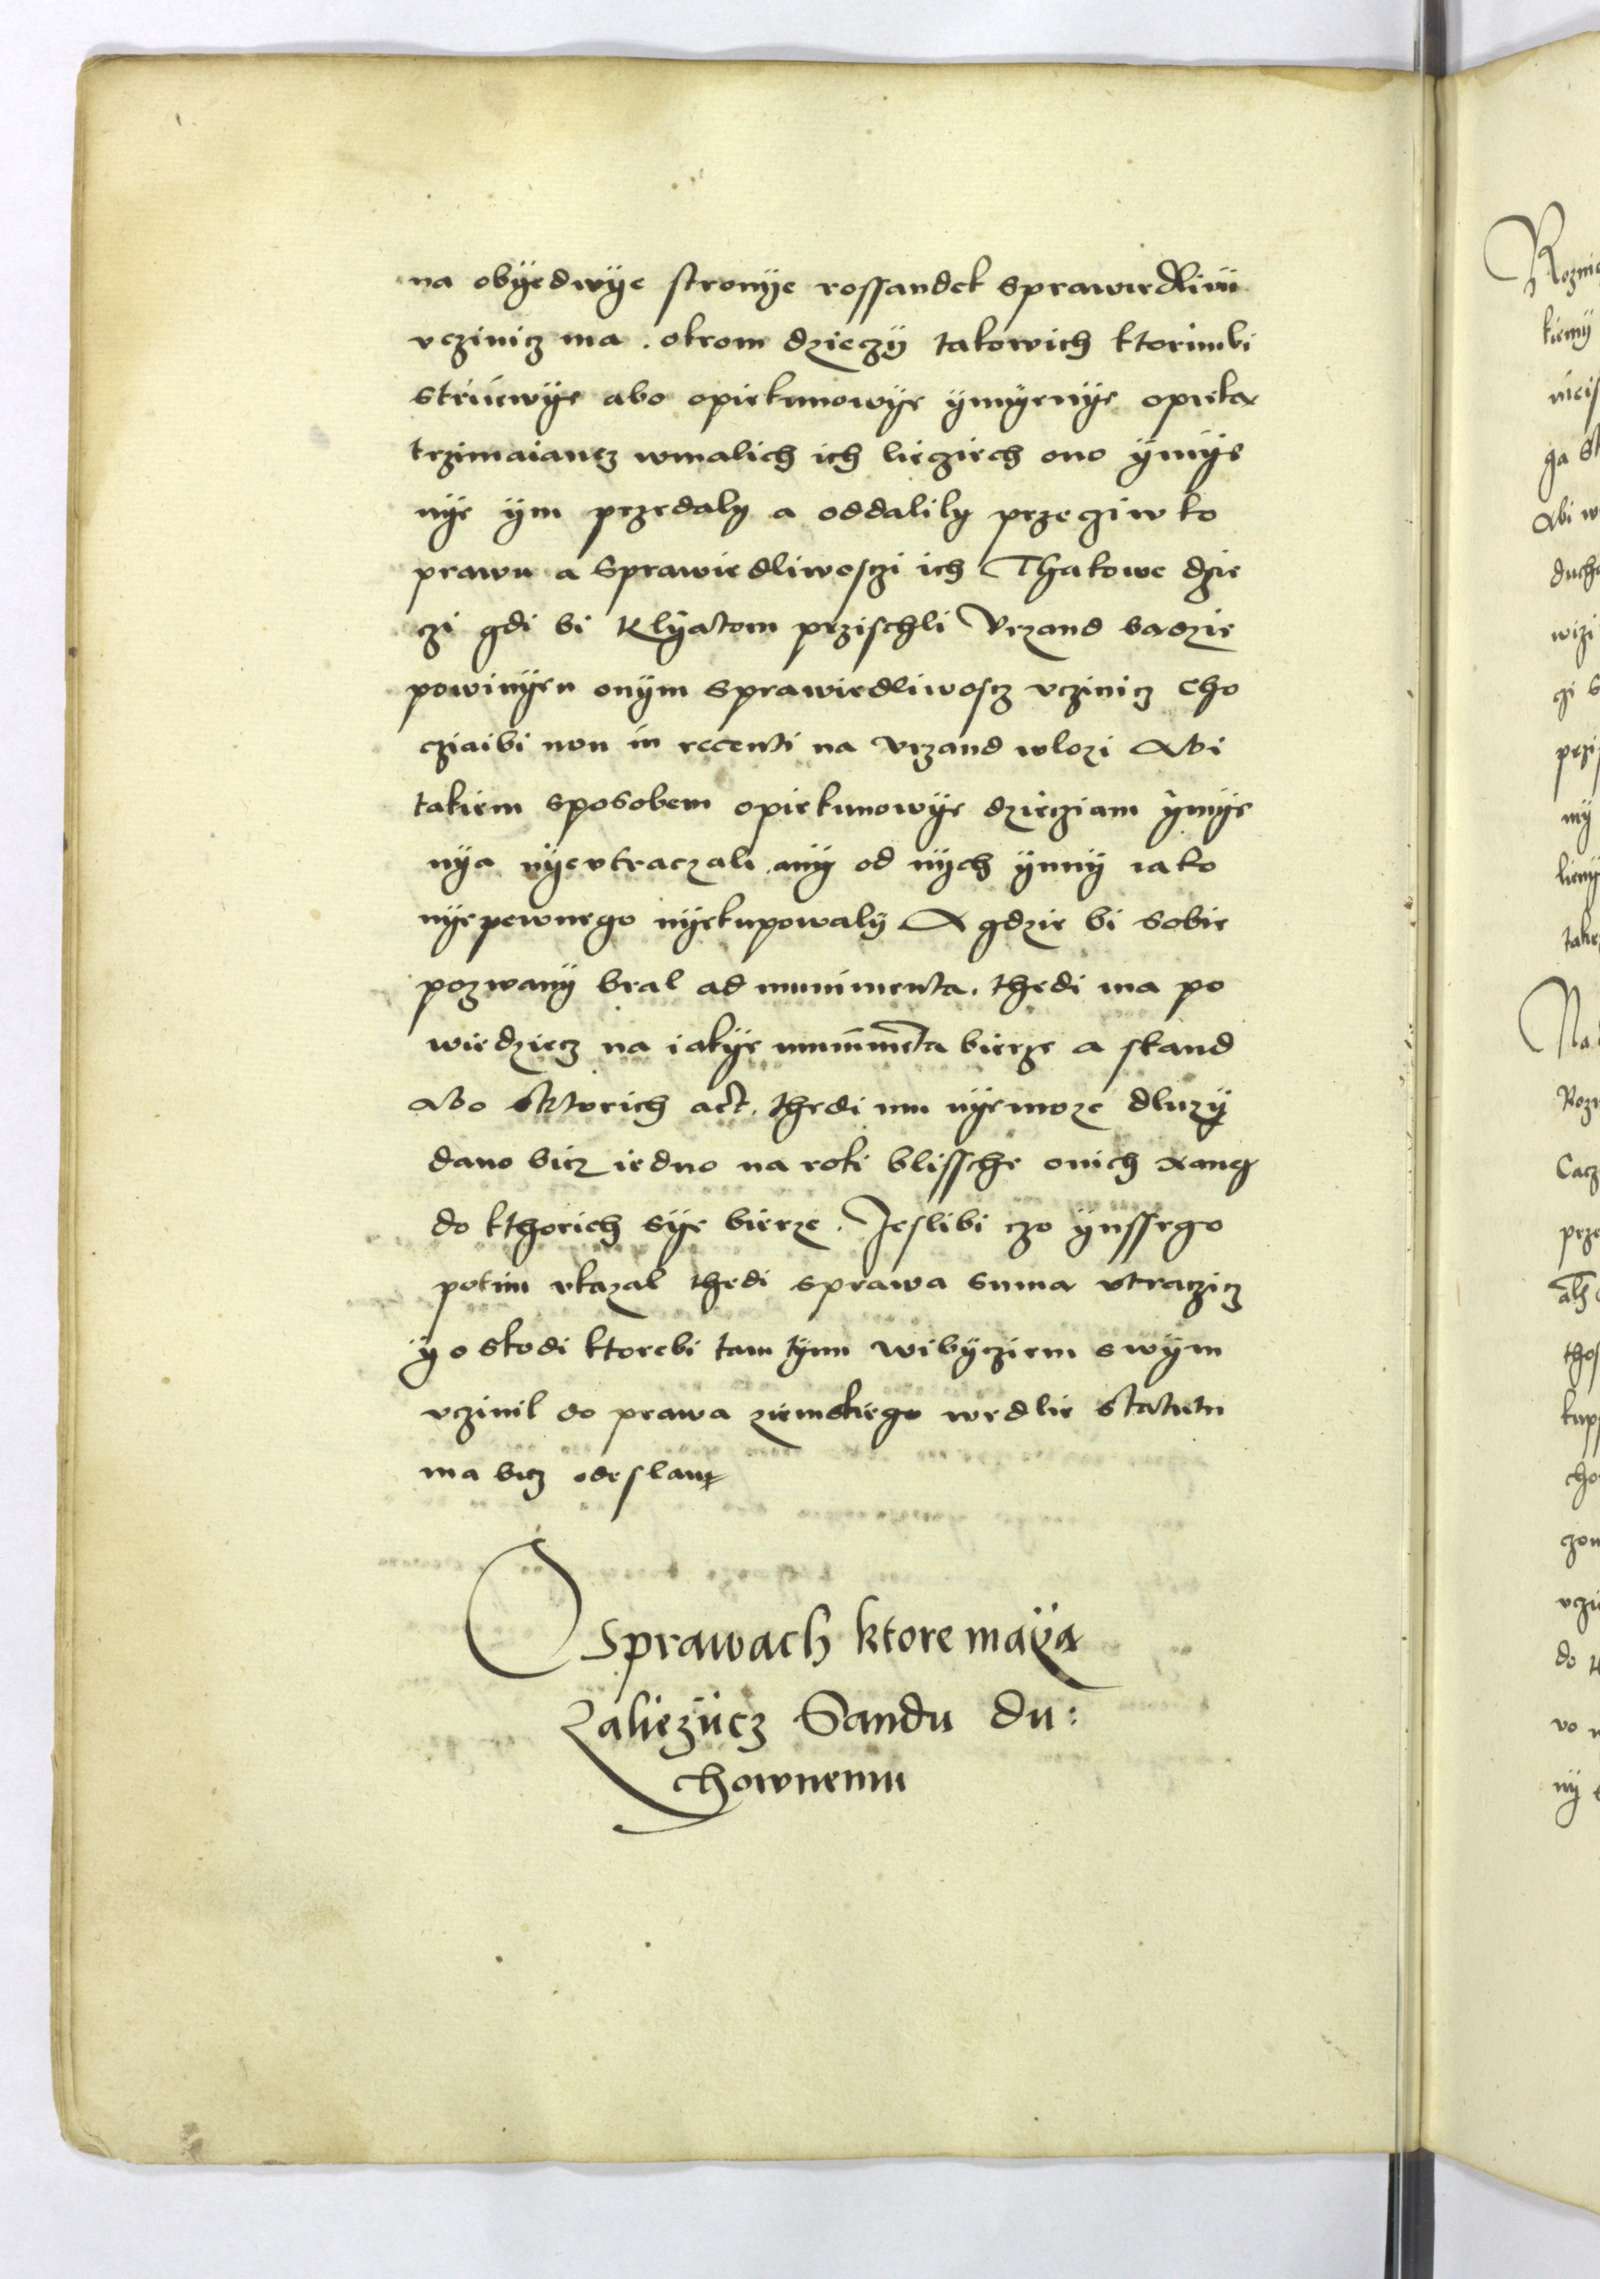 na obÿedwÿe stronÿe rossandek sprawiedliwi
vczinicz ma. okrom dzieczÿ takowich ktorimbi
strÿewÿe abo opiekunowÿe ÿmÿenÿe opieka
trzimaiancz wmalich ich lieciech ono ÿmÿe
nÿe ÿm przedalÿ a oddalilÿ przeciwko
prawu a sprawiedliwosczi ich Thakowe dzie
czi gdi bi klÿatom przischli Vrzand badzie
powinÿen onÿm sprawiedliwoscz vczinicz cho
cziaibi non in recenti na vrzand wlozi Abi
takiem sposobem opiekunowÿe dziecziam ÿmÿe
nÿa nÿevtraczali anÿ od nÿch ÿnnÿ iako
nÿepewnego nÿekupowalÿ A gdzie bi sobie
pozwanÿ bral ad munimenta. thedi ma po
wiedziecz na iakÿe munimenta bierze a skand
Abo Ktorich act. thedi mu nÿemoze dluzÿ
dano bicz iedno na roki blissche onich xang
do kthorich sÿe bierze. Jeslibi czo ÿnssego
potim vkazal thedi sprawa suma vtraczicz
ÿ o skodi ktorebi tam tÿm wibÿcziem swÿm
vczinil do prawa ziemskiego wedlie statutu
ma bicz odeslanÿ
O sprawach ktore maÿa
Zaliezÿcz Sandu du:
chownemu